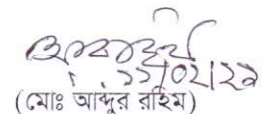 ২১/০২/২১
(মোঃ আব্দুর রহিম)